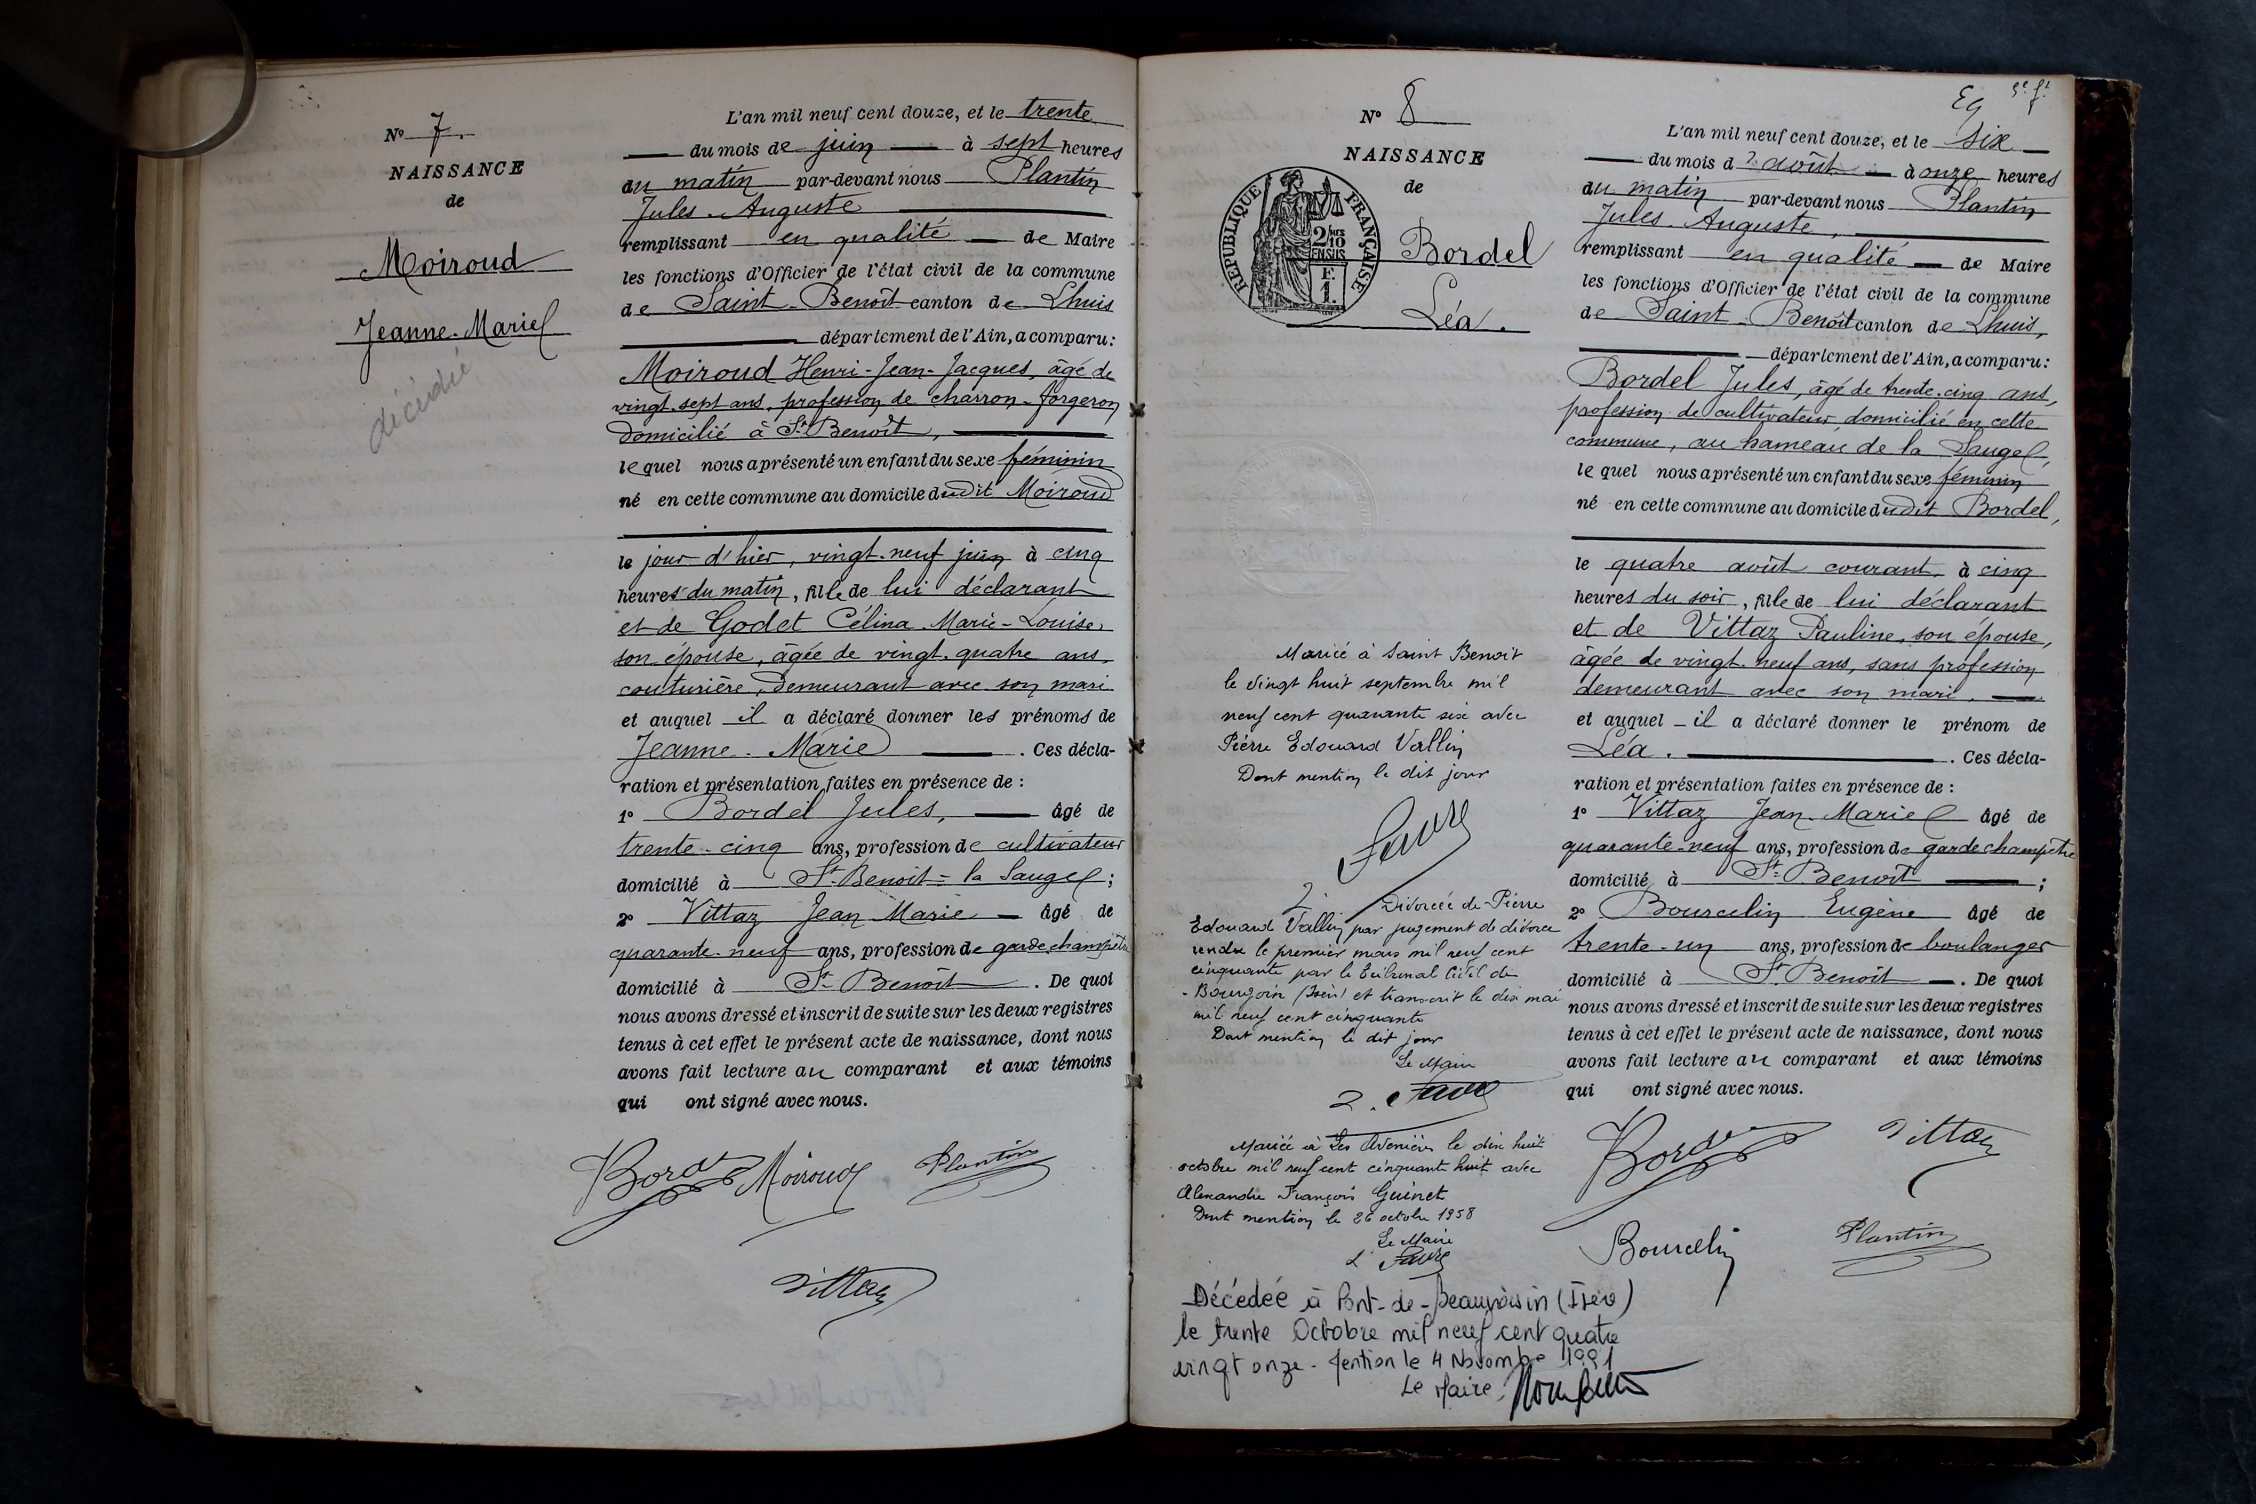 N° 7.
NAISSANCE
de
Moiroud
Jeanne-Marie
décédée
L'an mil neuf cent douze, et le trente
du mois de juin à sept heures
du matin par-devant nous Plantin
Jules-Auguste
remplissant en qualité de Maire
les fonctions d'Officier de l'état civil de la commune
de Saint-Benoît canton de Lhuis
département de l'Ain, a comparu:
Moiroud Henri-Jean-Jacques, âgé de
vingt-sept ans, profession de charron-forgeron
domicilié à St Benoît,
lequel nous a présenté un enfant du sexe féminin
né en cette commune au domicile dudit Moiroud
le jour d'hier, vingt-neuf juin à cinq
heures du matin, fille de lui déclarant
et de Godet Célina Marie-Louise,
son épouse, âgée de vingt-quatre ans,
couturière, demeurant avec son mari
et auquel il a déclaré donner les prénoms de
Jeanne-Marie . Ces décla-
ration et présentation faites en présence de :
1° Bordel Jules, âgé de
trente-cinq ans, profession de cultivateur
domicilié à St Benoit = la Sauge ;
2° Vittaz Jean Marie âgé de
quarante-neuf ans, profession de garde champêtre
domicilié à St Benoît . De quoi
nous avons dressé et inscrit de suite sur les deux registres
tenus à cet effet le présent acte de naissance, dont nous
avons fait lecture au comparant et aux témoins
qui ont signé avec nous.
Bordel Moiroud Plantin
Vittaz
N° 8
NAISSANCE
de
RÉPUBLIQUE FRANÇAISE
2/10
EN SUS
F.
1.
Bordel
Léa.
Mariée à Saint Benoit
le vingt huit septembre mil
neuf cent quarante six avec
Pierre Edouard Vallin
Dont mention le dit jour
Favre
Divorcée de Pierre
Edouard Vallin par jugement de divorce
rendu le premier mars mil neuf cent
cinquante par le Tribunal Civil de
Bourgoin (Isère) et transcrit le dix mai
mil neuf cent cinquante
Dont mention le dit jour
Le Maire
Favre
Mariée à Les Avenières le dix huit
octobre mil neuf cent cinquante huit avec
Alexandre François Guinet
Dont mention le 26 octobre 1958
Le Maire
Favre
Décédée à Pont-de-Beauvoisin (Isère)
le trente Octobre mil neuf cent quatre
vingt onze - Mention le 4 Novembre 1991
Le Maire,
L'an mil neuf cent douze, et le six
du mois d'août à onze heures
du matin par-devant nous Plantin
Jules-Auguste,
remplissant en qualité de Maire
les fonctions d'Officier de l'état civil de la commune
de Saint-Benoît canton de Lhuis,
département de l'Ain, a comparu:
Bordel Jules, âgé de trente-cinq ans,
profession de cultivateur domicilié en cette
commune, au hameau de la Sauge,
lequel nous a présenté un enfant du sexe féminin
né en cette commune au domicile dudit Bordel,
le quatre août courant, à cinq
heures du soir, fille de lui déclarant
et de Vittaz Pauline, son épouse,
âgée de vingt-neuf ans, sans profession
demeurant avec son mari,
et auquel il a déclaré donner le prénom de
Léa. . Ces décla-
ration et présentation faites en présence de :
1° Vittaz Jean-Marie âgé de
quarante-neuf ans, profession de garde champêtre
domicilié à St Benoît ;
2° Bourcelin Eugène âgé de
trente-un ans, profession de boulanger
domicilié à St Benoît . De quoi
nous avons dressé et inscrit de suite sur les deux registres
tenus à cet effet le présent acte de naissance, dont nous
avons fait lecture au comparant et aux témoins
qui ont signé avec nous.
Bordel Vittaz
Bourcelin Plantin